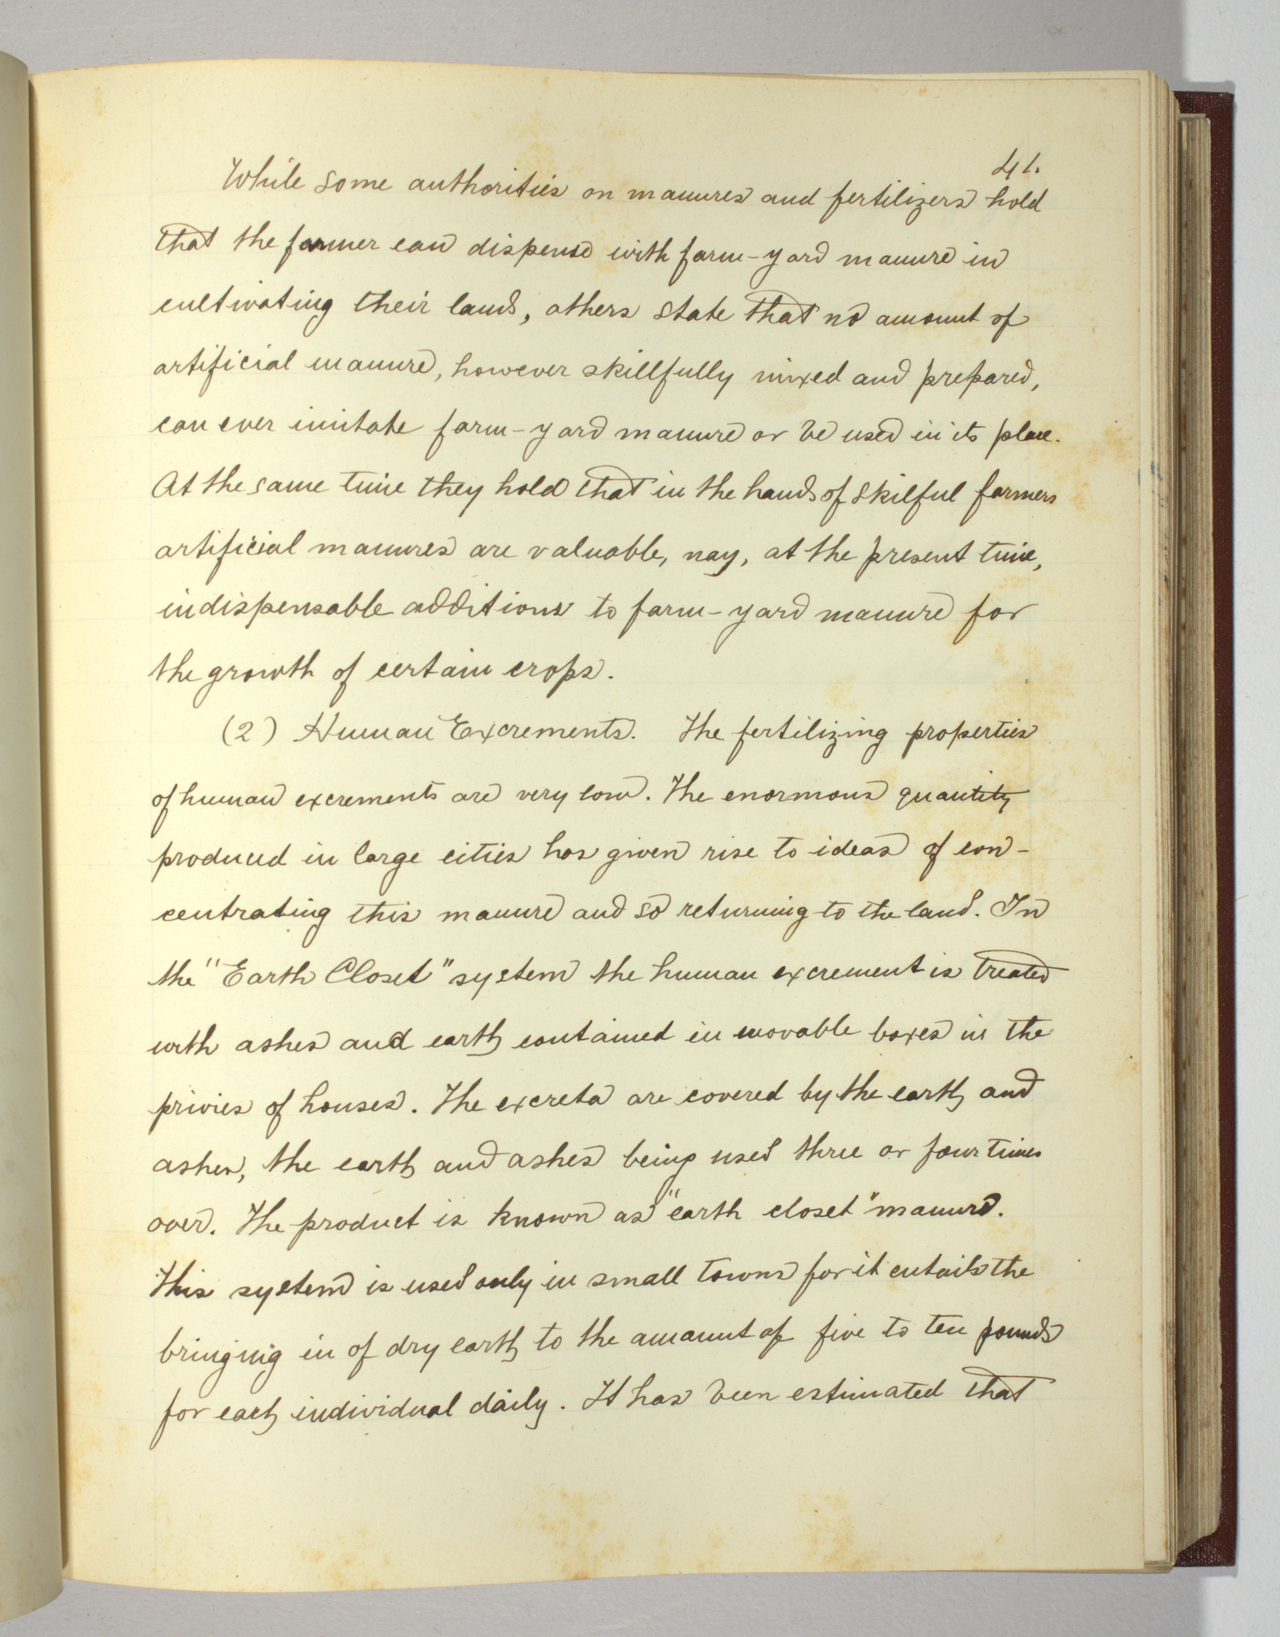 41.
While some authorities on manures and fertilizers hold
that the farmer can dispense with farm-yard manure in
cultivating their lands, others state that no amount of
artificial manure, however skillfully mixed and prepared,
can ever imitate farm-yard manure or be used in its place.
At the same time they hold that in the hands of skilful farmers
artificial manures are valuable, nay, at the present time,
indispensable additions to farm-yard manure for
the growth of certain crops.
(2) Human Excrements. The fertilizing properties
of human excrements are very low. The enormous quantity
produced in large cities has given rise to ideas of con-
centrating this manure and so returning to the land. In
the "Earth Closet" system the human excrement is treated
with ashes and earth contained in movable boxes in the
privies of houses. The excreta are covered by the earth and
ashes, the earth and ashes being used three or four times
over. The product is known as "earth closet" manure.
This system is used only in small towns for it entails the
bringing in of dry earth to the amount of five to ten pounds
for each individual daily. It has been estimated that